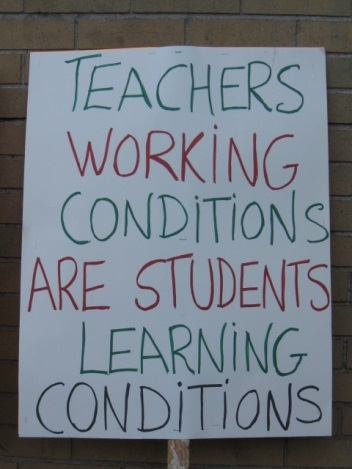 TEACHERS
WORKING
CONDiTiONS
ARE STUDENTS
LEARNiNG
CONDiTiONS